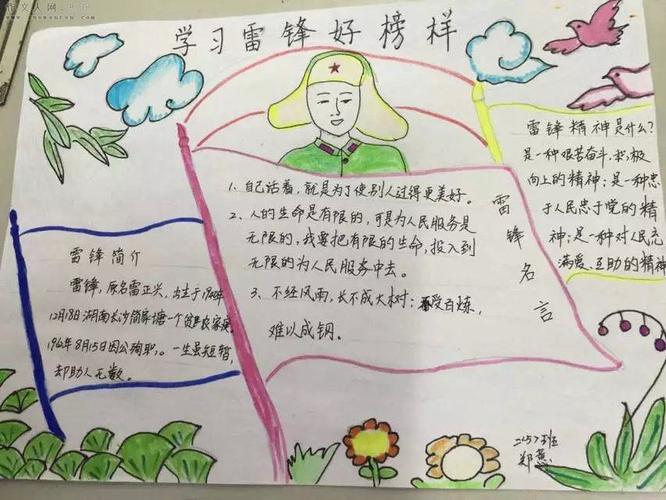 学习雷锋好榜样
1、自己活着，就是为了使别人过得更美好。
2、人的生命是有限的，可是为人民服务是
无限的，我要把有限的生命，投入到
无限的为人民服务中去。
3、不经风雨，长不成大树；受百炼，
难以成钢。
雷锋名言
雷锋精神是什么？
是一种艰苦奋斗，求，极
向上的精神；是一种忠
于人民忠于党的精
神；是一种对人民充
满爱、互助的精神
雷锋简介
雷锋，原名雷正兴，出生于1940年
12月18日湖南长沙简家塘一个贫农家
1962年8月15日因公殉职，。一生虽短暂，
却助人无数。
二（5）班
郑蕙
作文人网